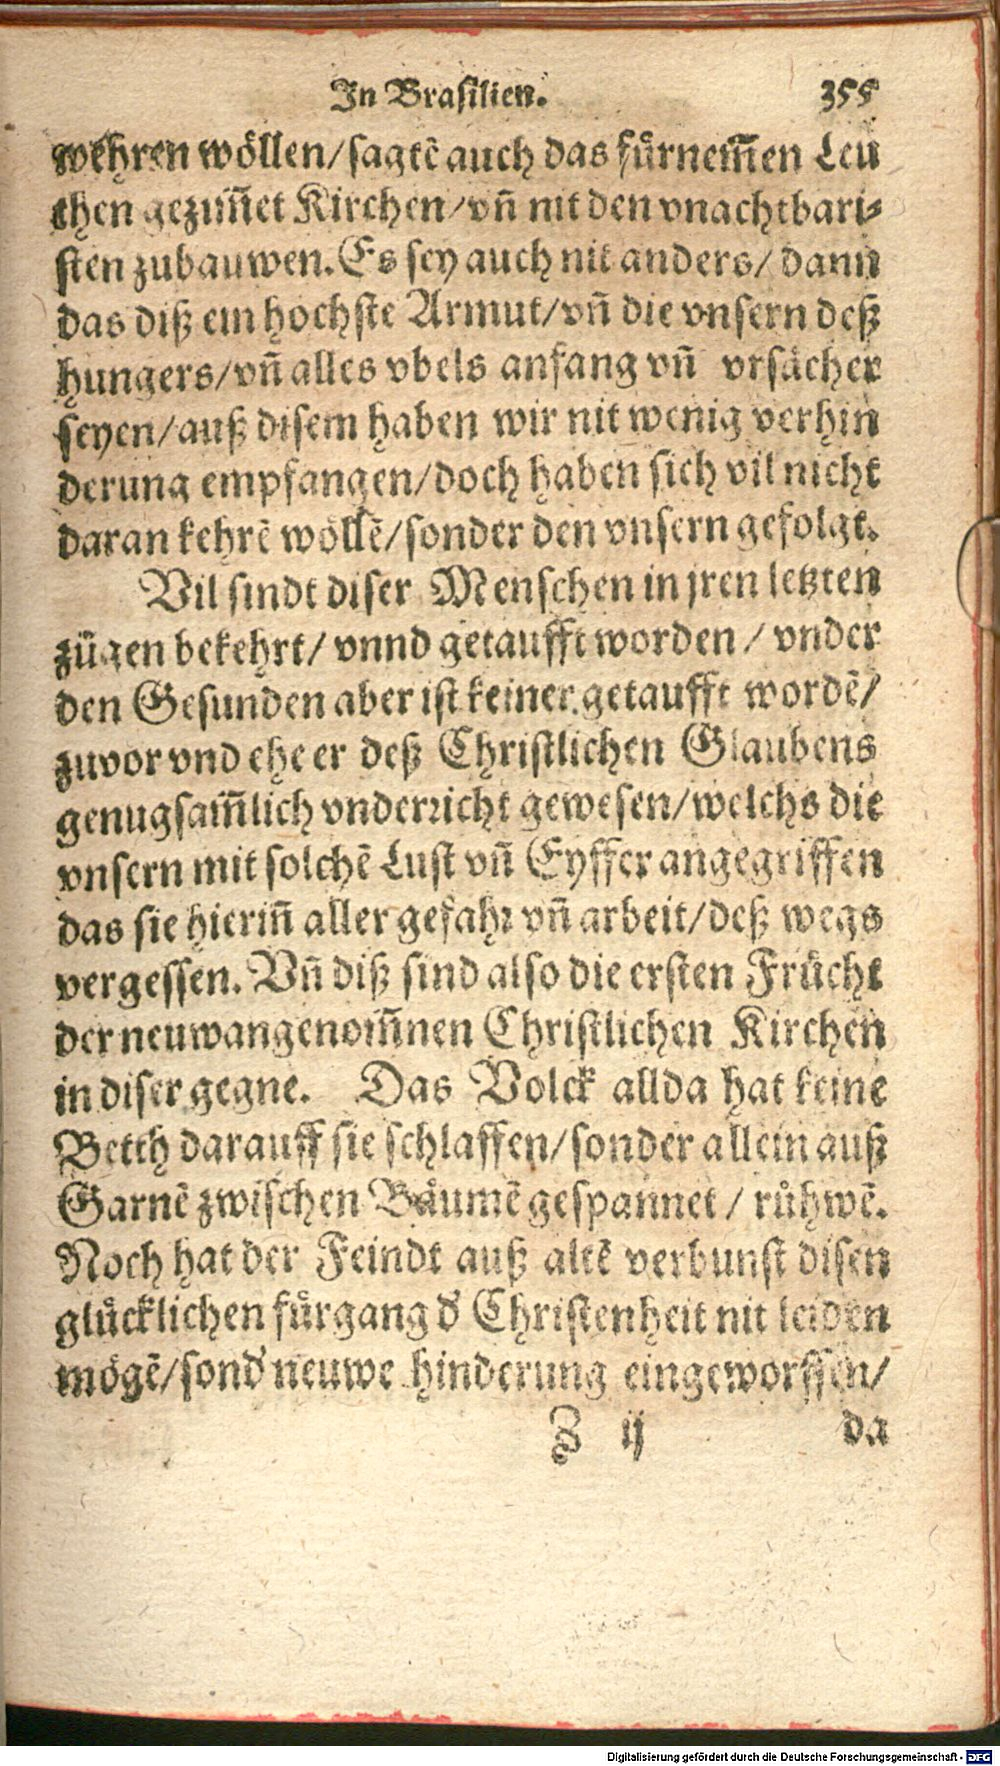 In Brasilien. 355
wehren wöllen/sagtē auch das fürnem̃en Leu
then gezim̃et Kirchen/vñ nit den vnachtbari-
sten zubauwen. Es sey auch nit anders/dann
das diß ein hochste Armut/vñ die vnsern deß
hungers/vñ alles vbels anfang vñ vrsächer
seyen/auß disem haben wir nit wenig verhin
derung empfangen/doch haben sich vil nicht
daran kehrē wöllē/sonder den vnsern gefolgt.
Vil sindt diser Menschen in jren letzten
zügen bekehrt/ vnnd getaufft worden/ vnder
den Gesunden aber ist keiner getaufft wordē/
zuvor vnd ehe er deß Christlichen Glaubens
genugsam̃lich vnderricht gewesen/welchs die
vnsern mit solchē Lust vñ Eyffer angegriffen
das sie hierin̄ aller gefahr vñ arbeit/deß wegs
vergessen. Vñ diß sind also die ersten Frücht
der neuwangenom̃nen Christlichen Kirchen
in diser gegne. Das Volck allda hat keine
Betth darauff sie schlaffen/sonder allein auß
Garnē zwischen Bäumē gespannet/ růhwē.
Noch hat der Feindt auß altē verbunst disen
glücklichen fürgang d' Christenheit nit leiden
mögē/sond' neuwe hinderung eingeworffen/
Z ij da
Digitalisierung gefördert durch die Deutsche Forschungsgemeinschaft - DFG